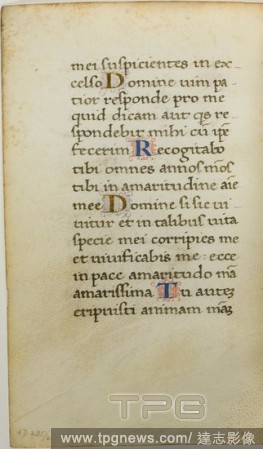 mei suspicientes in ex-
celso Domine uim pa-
tior responde pro me
quid dicam aut qs re-
spondebit mihi cū ipe
fecerim Recogitabo
tibi omnes annos mos
tibi in amaritudine aīe
mee Domine si sic ui-
uitur et in talibus uita
spiritus mei corripies me
et uiuificabis me ecce
in pace amaritudo ma
amarissima Tu autez
eripuisti animam maz
TPG
www.tpgnews.com/ 達志影像